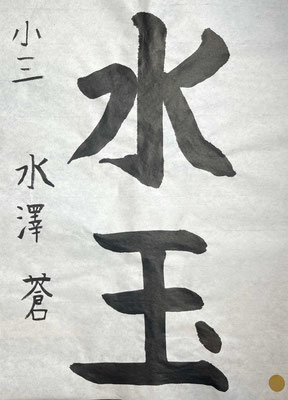 水玉
小三 水澤 蒼